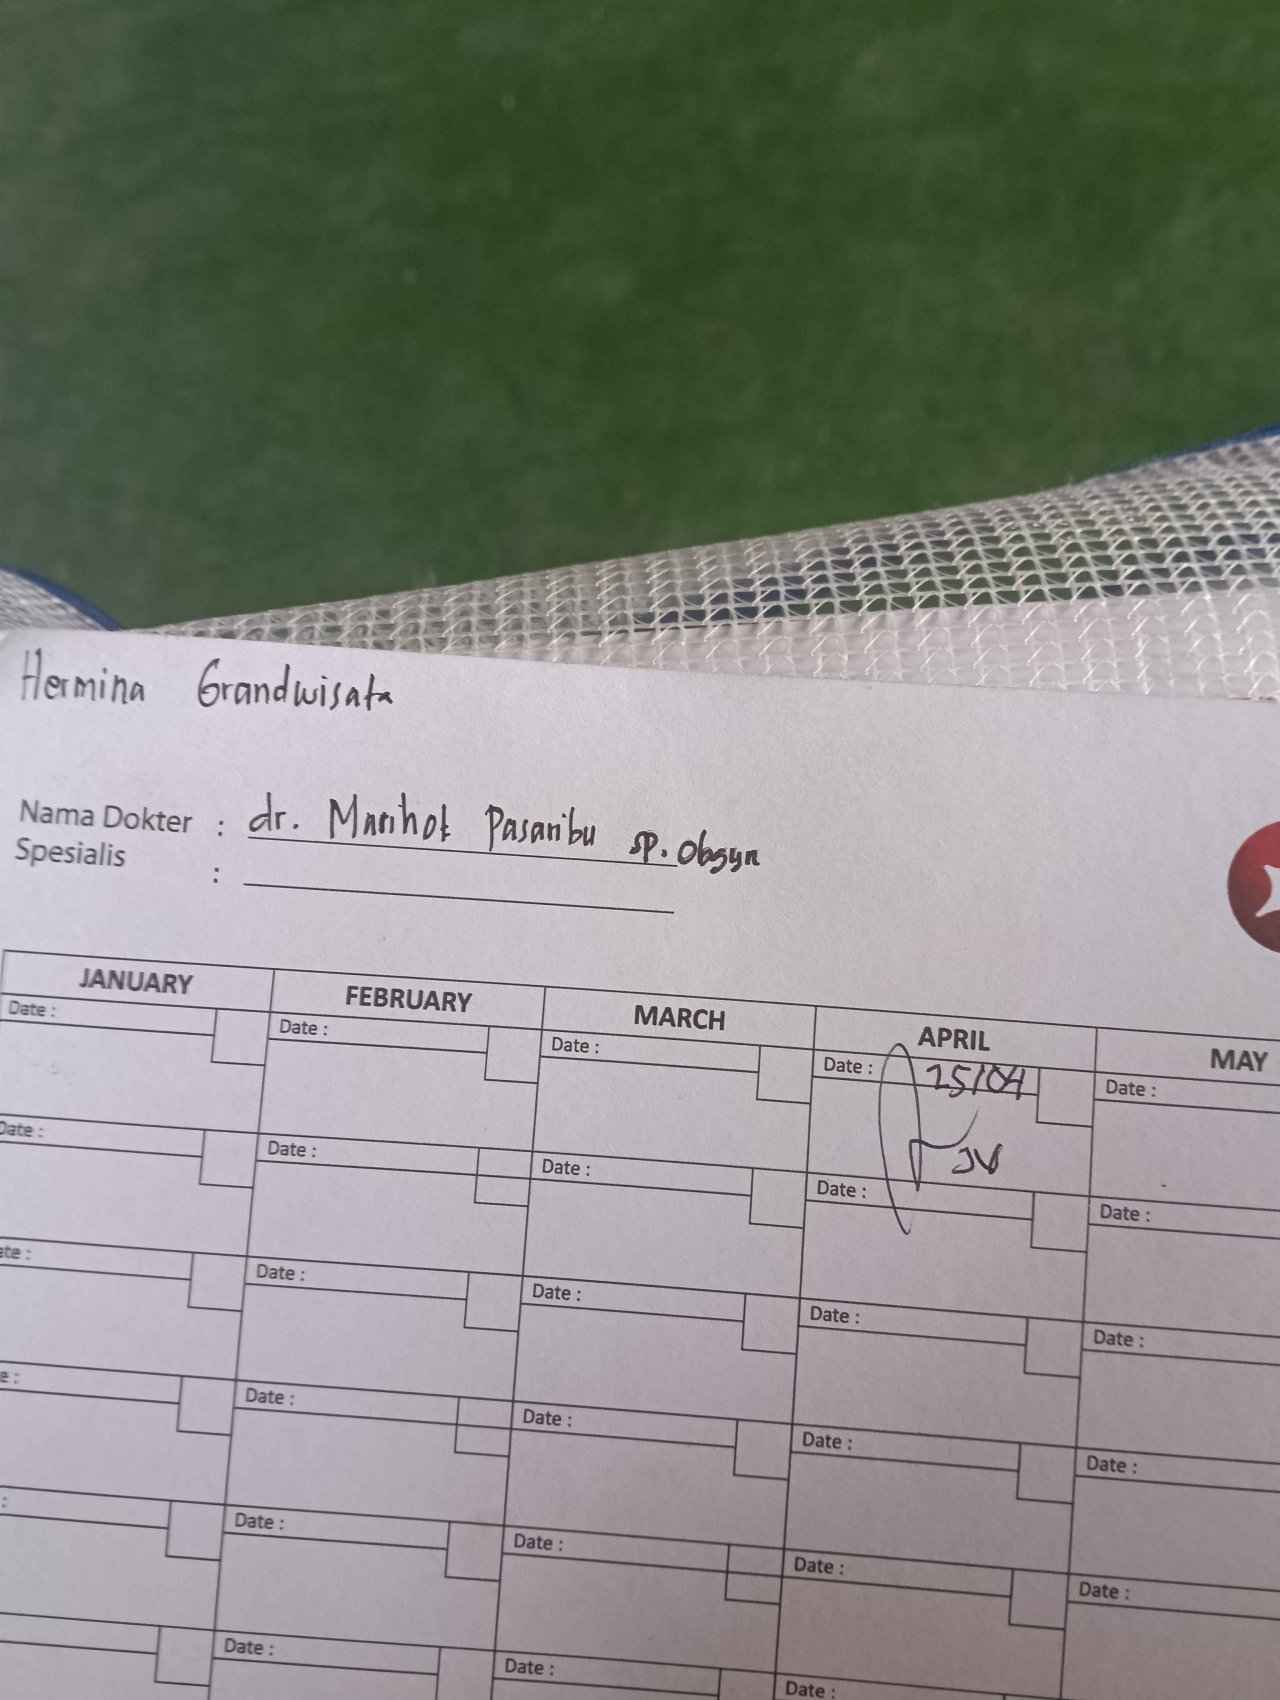 Hermina Grandwisata
Nama Dokter : dr. Marihot Pasaribu sp. Obgyn
Spesialis :
JANUARY FEBRUARY MARCH APRIL MAY
Date : Date : Date : Date : 25/04 Date :
JV
Date : Date : Date : Date : Date :
ate : Date : Date : Date : Date :
e : Date : Date : Date : Date :
: Date : Date : Date : Date :
Date : Date : Date :